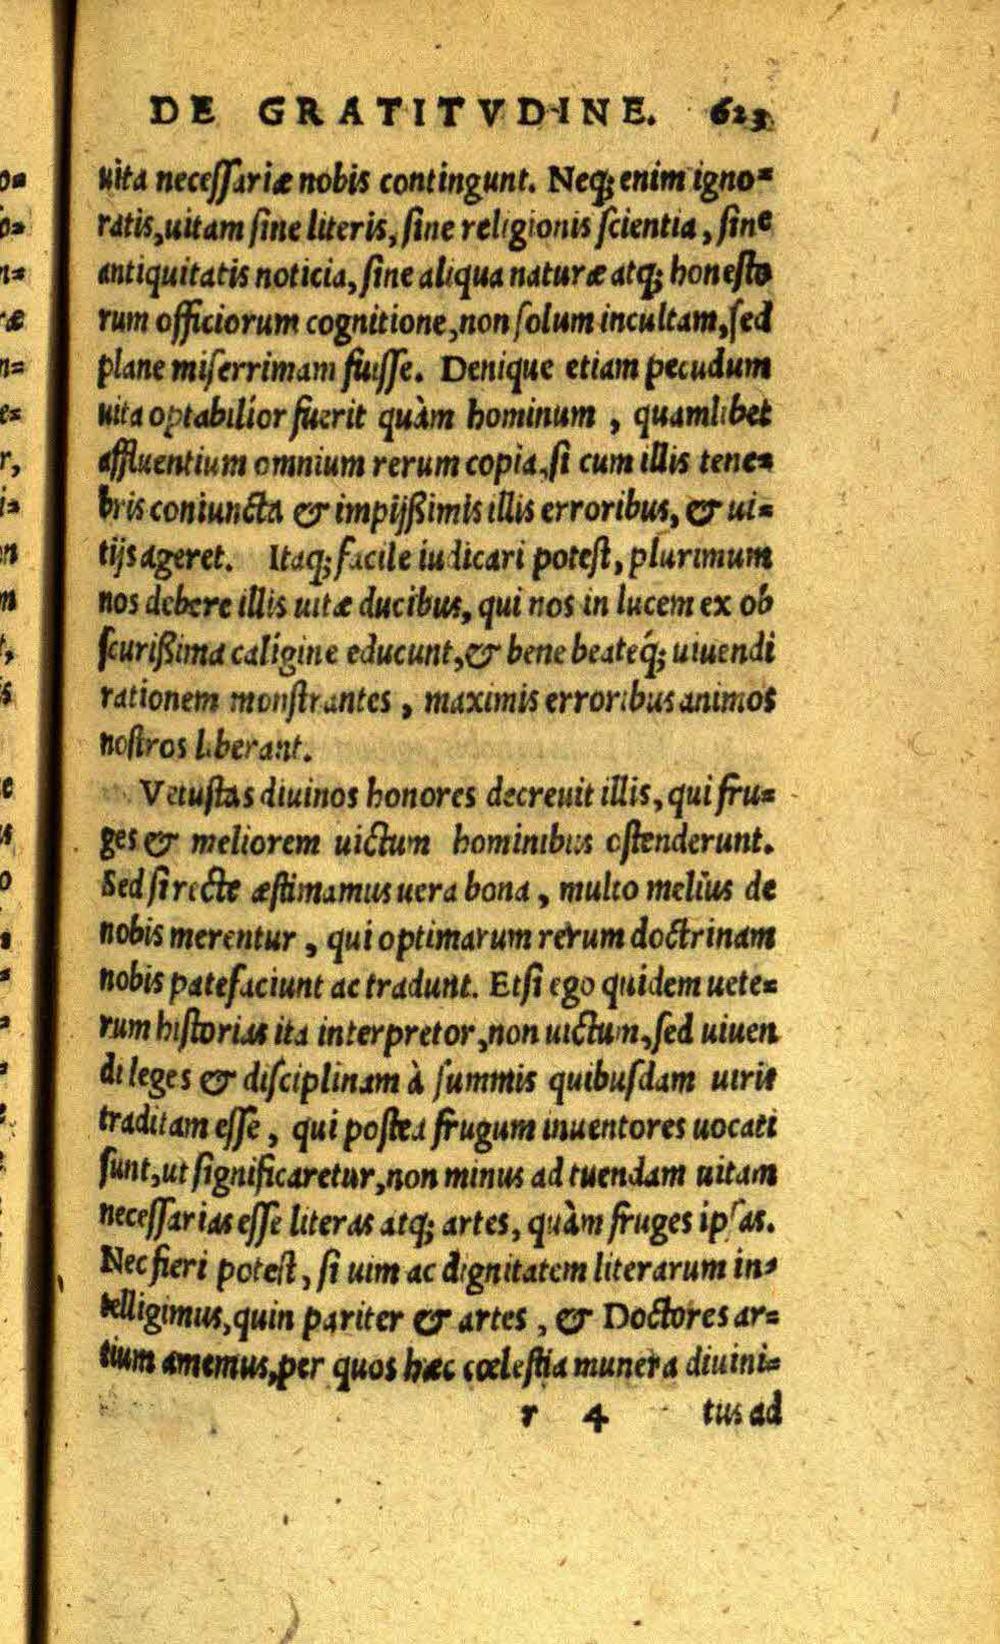 DE GRATITVDINE. 623
uita necessariæ nobis contingunt. Neq; enim igno=
ratis, uitam sine literis, sine religionis scientia, sine
antiquitatis noticia, sine aliqua naturæ atq; honesto
rum officiorum cognitione, non solum incultam, sed
plane miserrimam fuisse. Denique etiam pecudum
uita optabilior fuerit quàm hominum, quamlibet
affluentium omnium rerum copia, si cum illis tene=
bris coniuncta & impijßimis illis erroribus, & ui=
tijs ageret. Itaq; facile iudicari potest, plurimum
nos debere illis uitæ ducibus, qui nos in lucem ex ob
scurißima caligine educunt, & bene beateq́; uiuendi
rationem monstrantes, maximis erroribus animos
nostros liberant.
Vetustas diuinos honores decreuit illis, qui fru=
ges & meliorem uictum hominibus ostenderunt.
Sed si recte æstimamus uera bona, multo melius de
nobis merentur, qui optimarum rerum doctrinam
nobis patefaciunt ac tradunt. Etsi ego quidem uete=
rum historias ita interpretor, non uictum, sed uiuen
di leges & disciplinam à summis quibusdam uiris
traditam esse, qui postea frugum inuentores uocati
sunt, ut significaretur, non minus ad tuendam uitam
necessarias esse literas atq; artes, quàm fruges ipsas.
Nec fieri potest, si uim ac dignitatem literarum in=
telligimus, quin pariter & artes, & Doctores ar=
tium amemus, per quos hæc cœlestia munera diuini=
r 4 tus ad